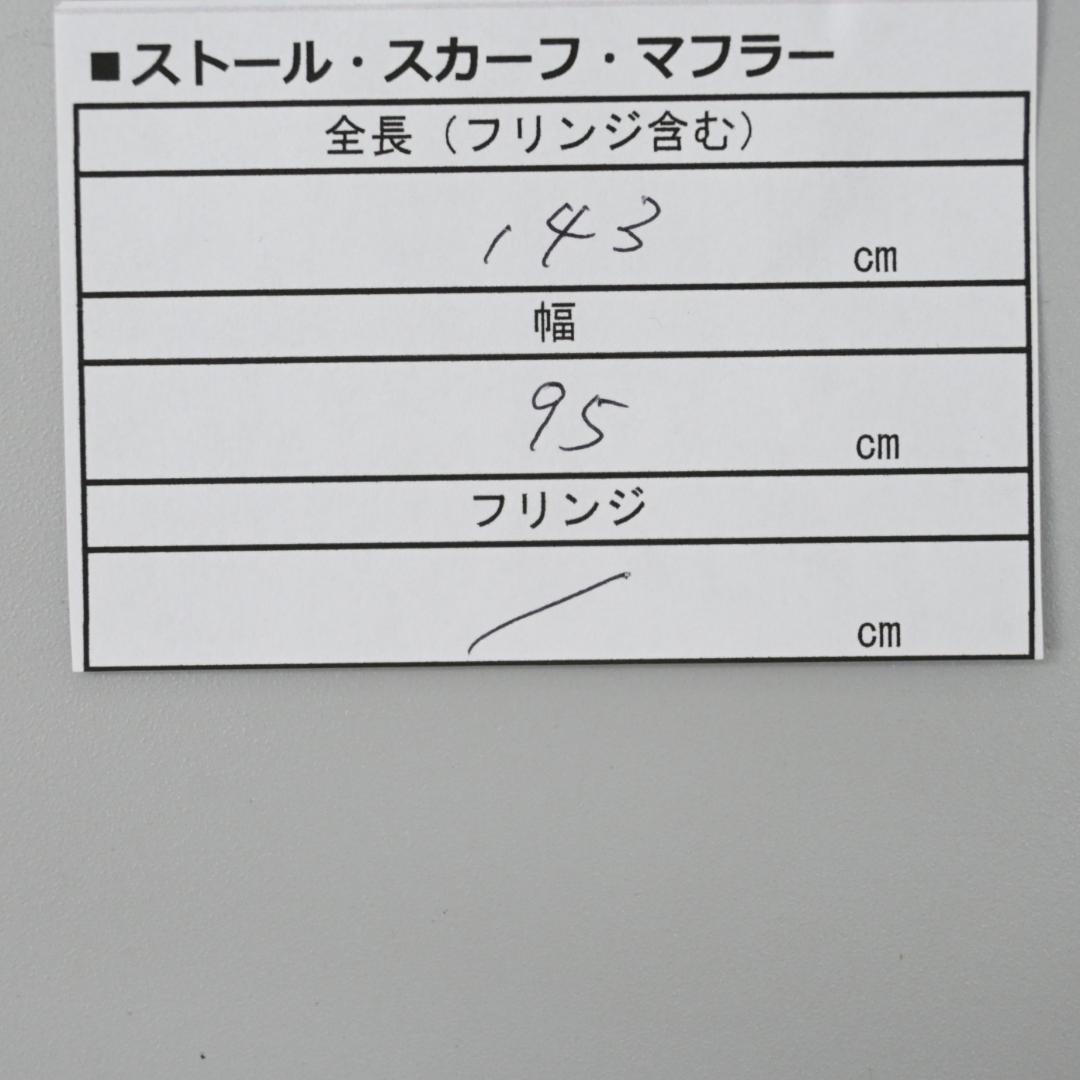 ■ストール・スカーフ・マフラー
全長（フリンジ含む）
143 cm
幅
95 cm
フリンジ
／ cm